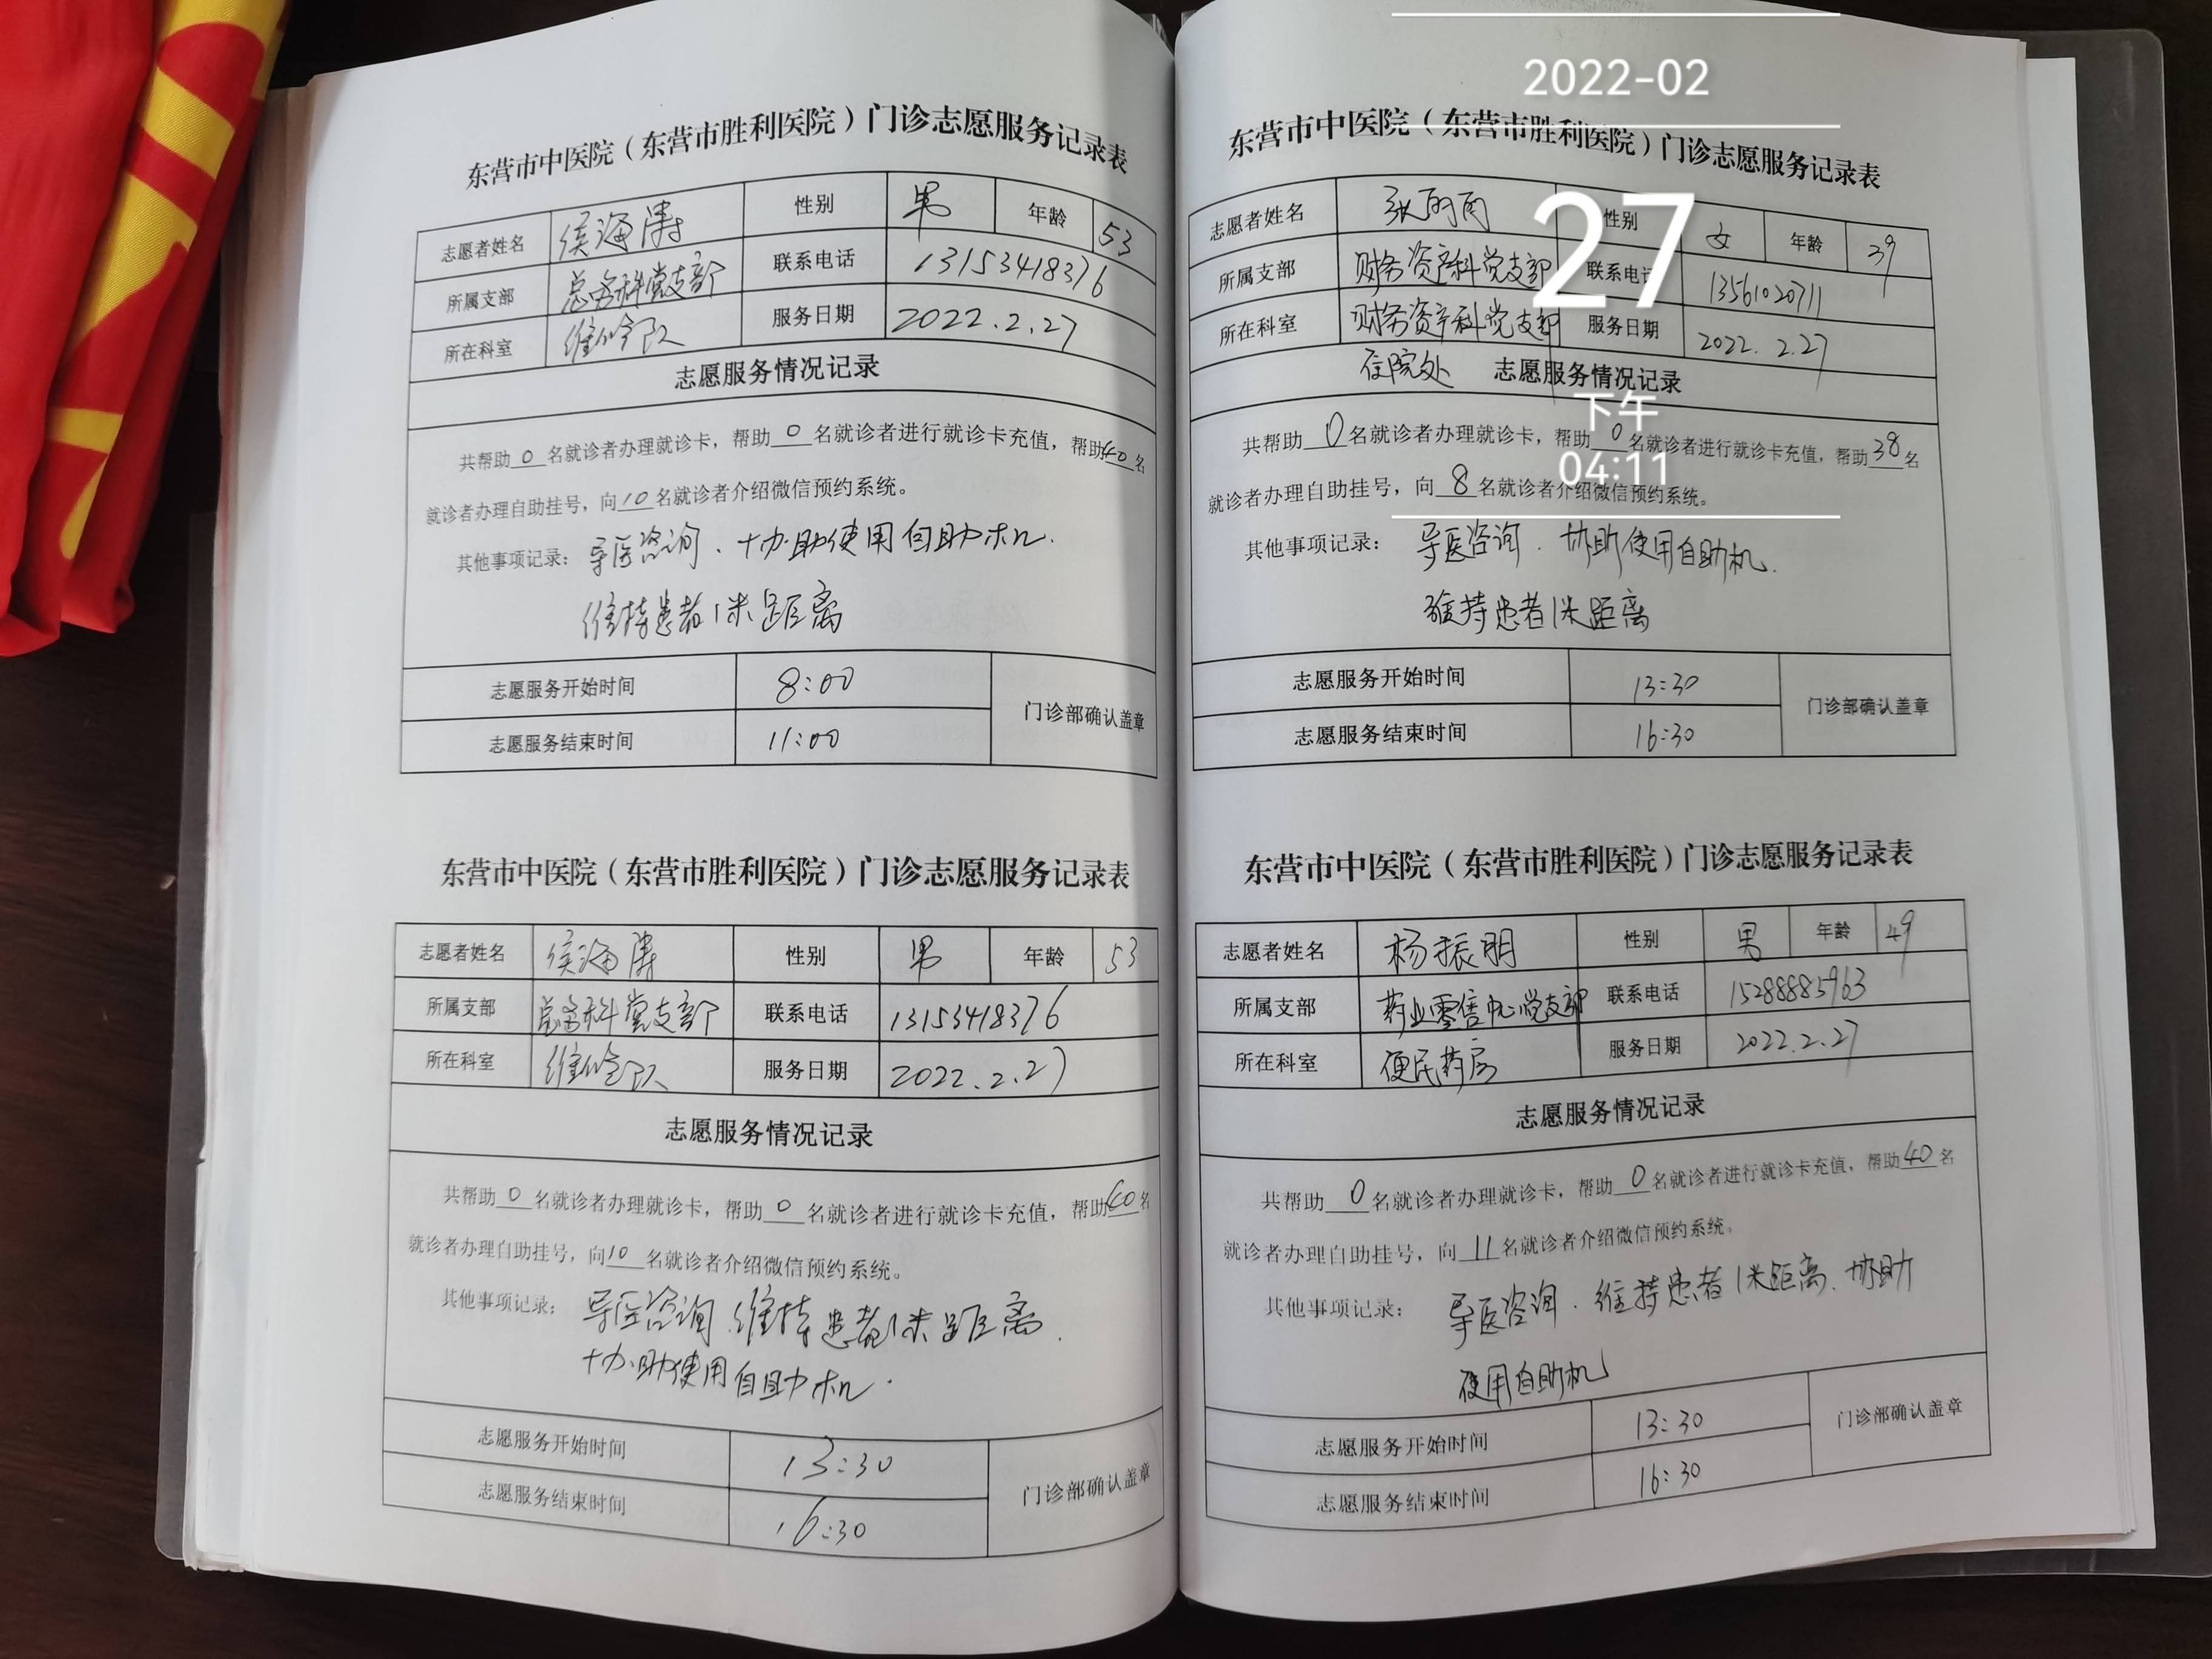 东营市中医院（东营市胜利医院）门诊志愿服务记录表
志愿者姓名 侯海涛 性别 男 年龄 53
所属支部 总务科党支部 联系电话 13153418376
所在科室 维修队 服务日期 2022.2.27
志愿服务情况记录
共帮助 0 名就诊者办理就诊卡，帮助 0 名就诊者进行就诊卡充值，帮助 40 名
就诊者办理自助挂号，向 10 名就诊者介绍微信预约系统。
其他事项记录：导医咨询、协助使用自助机.
维持患者1米距离
志愿服务开始时间 8:00
门诊部确认盖章
志愿服务结束时间 11:00
东营市中医院（东营市胜利医院）门诊志愿服务记录表
志愿者姓名 侯海涛 性别 男 年龄 53
所属支部 总务科党支部 联系电话 13153418376
所在科室 维修队 服务日期 2022.2.27
志愿服务情况记录
共帮助 0 名就诊者办理就诊卡，帮助 0 名就诊者进行就诊卡充值，帮助 名
就诊者办理自助挂号，向 10 名就诊者介绍微信预约系统。
其他事项记录：导医咨询、维持患者1米距离.
协助使用自助机.
志愿服务开始时间 13:30
门诊部确认盖章
志愿服务结束时间 16:30
2022-02
27
下午
04:11
东营市中医院（东营市胜利医院）门诊志愿服务记录表
志愿者姓名 张丽雨 性别 女 年龄 39
所属支部 财务资产科党支部 联系电话 13561020711
所在科室 财务资产科党支部 服务日期 2022.2.27
住院处 志愿服务情况记录
共帮助 0 名就诊者办理就诊卡，帮助 0 名就诊者进行就诊卡充值，帮助 38 名
就诊者办理自助挂号，向 8 名就诊者介绍微信预约系统。
其他事项记录：导医咨询、协助使用自助机.
维持患者1米距离
志愿服务开始时间 13:30
门诊部确认盖章
志愿服务结束时间 16:30
东营市中医院（东营市胜利医院）门诊志愿服务记录表
志愿者姓名 杨振明 性别 男 年龄 49
所属支部 药业零售中心党支部 联系电话 15288885963
所在科室 便民药房 服务日期 2022.2.27
志愿服务情况记录
共帮助 0 名就诊者办理就诊卡，帮助 0 名就诊者进行就诊卡充值，帮助 40 名
就诊者办理自助挂号，向 11 名就诊者介绍微信预约系统。
其他事项记录：导医咨询、维持患者1米距离、协助
使用自助机
志愿服务开始时间 13:30
门诊部确认盖章
志愿服务结束时间 16:30